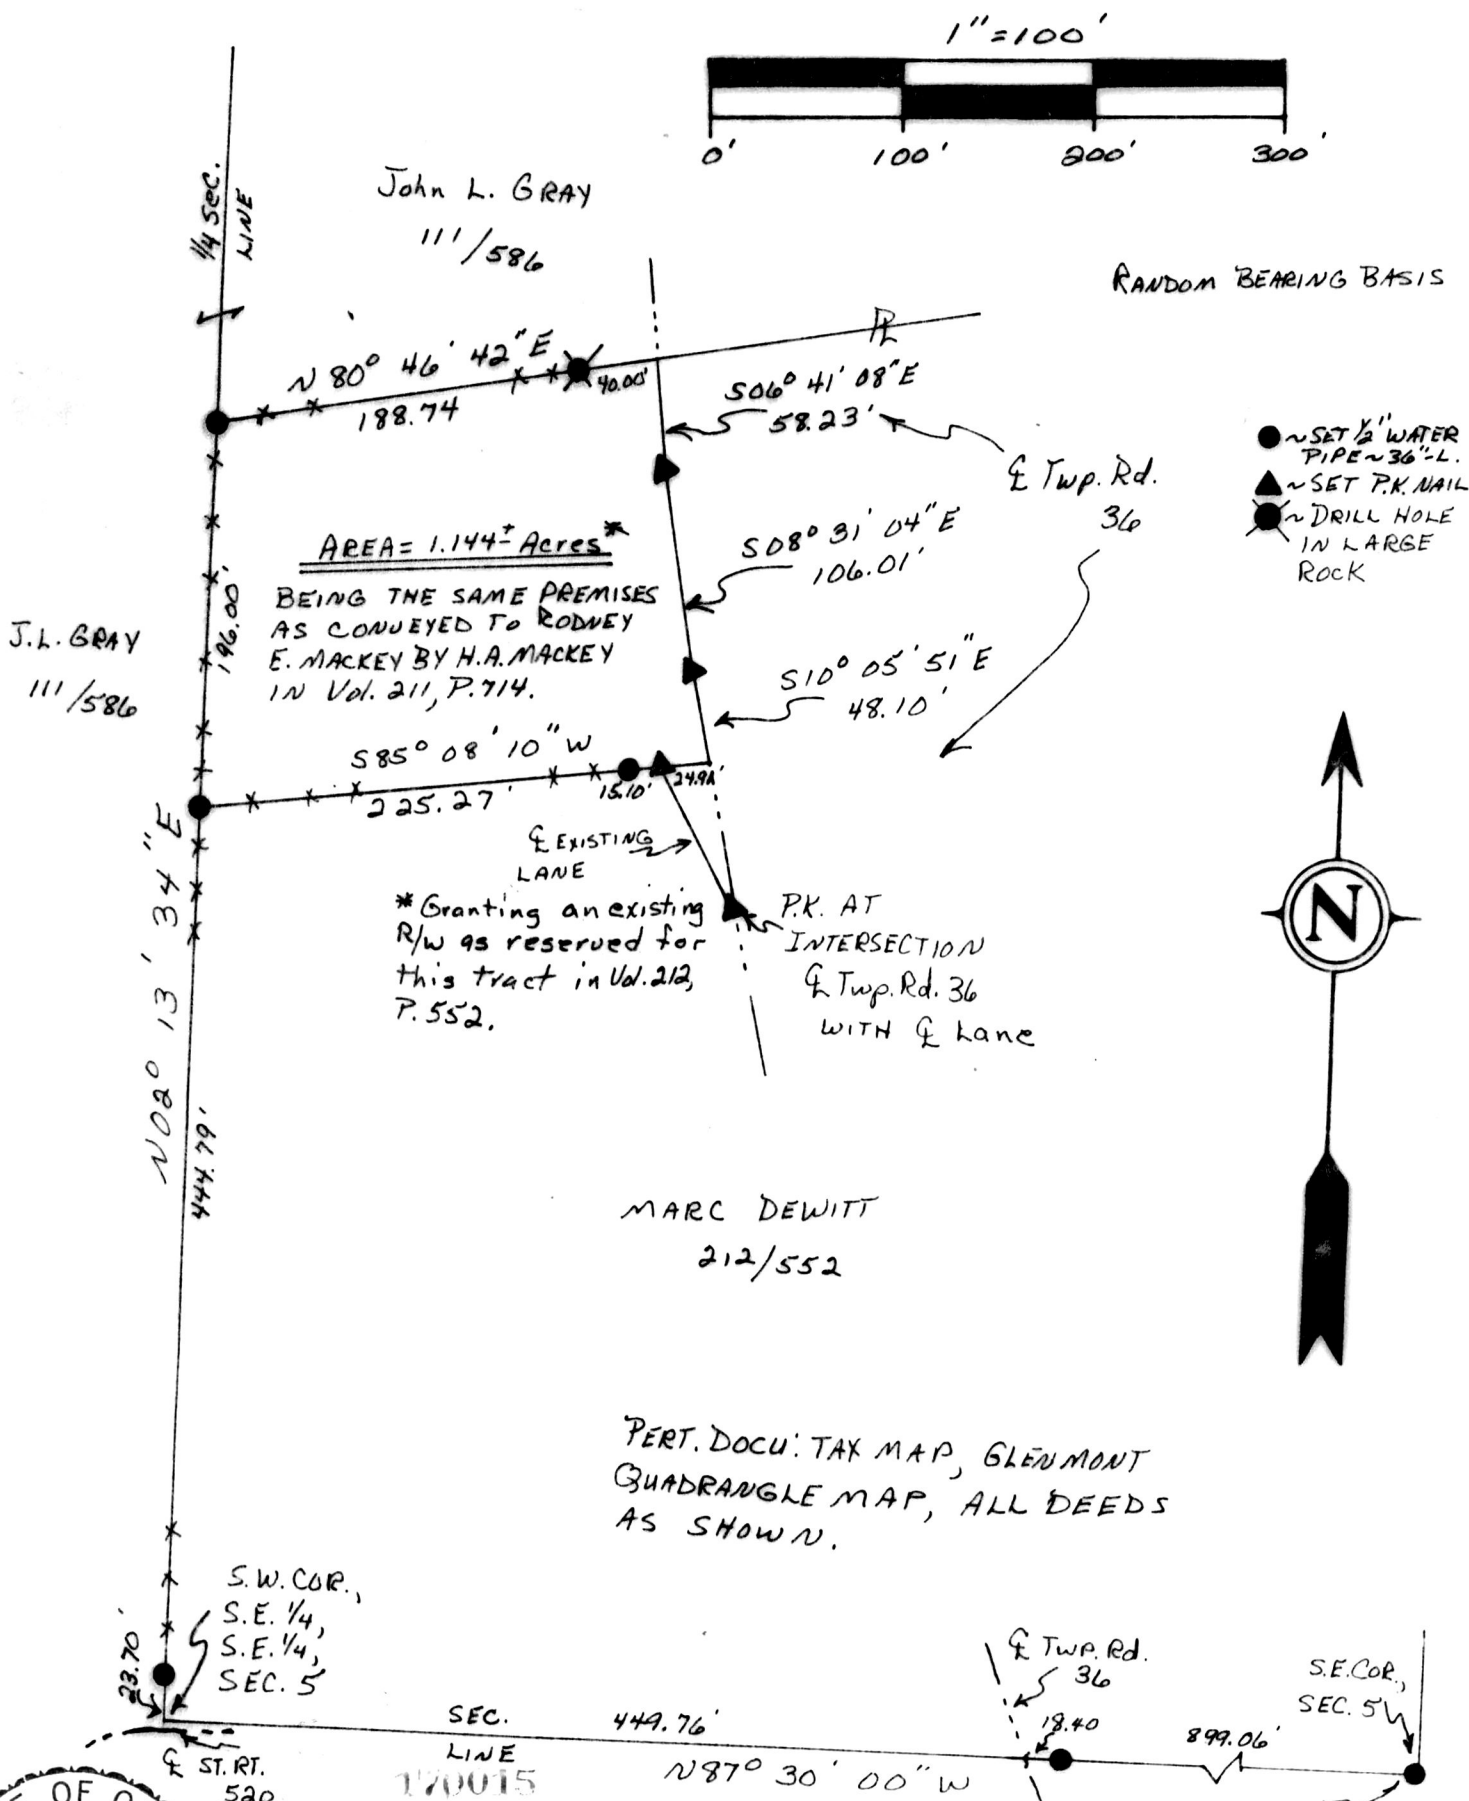 1"=100'
0' 100' 200' 300'
1/4 SEC.
LINE
John L. GRAY
111/586
RANDOM BEARING BASIS
PL
N 80° 46' 42" E
188.74
40.00'
S06° 41' 08" E
58.23'
℄ Twp. Rd.
36
● ~ SET 1/2" WATER
PIPE ~ 36"-L.
▲ ~ SET P.K. NAIL
~ DRILL HOLE
IN LARGE
ROCK
AREA = 1.144± Acres*
S08° 31' 04" E
106.01'
BEING THE SAME PREMISES
AS CONVEYED TO RODNEY
E. MACKEY BY H.A. MACKEY
IN Vol. 211, P. 714.
196.00'
J.L. GRAY
111/586
S10° 05' 51" E
48.10'
S85° 08' 10" W
225.27'
15.10'
℄ EXISTING
LANE
* Granting an existing
R/W as reserved for
this tract in Vol. 212,
P. 552.
P.K. AT
INTERSECTION
℄ Twp. Rd. 36
WITH ℄ Lane
N
N02° 13' 34" E
444.79'
MARC DEWITT
212/552
PERT. DOCU: TAX MAP, GLENMONT
QUADRANGLE MAP, ALL DEEDS
AS SHOWN.
S.W. COR.,
S.E. 1/4,
S.E. 1/4,
SEC. 5
23.70'
℄ Twp. Rd.
36
S.E. COR.,
SEC. 5
SEC. 449.76' 18.40 899.06'
LINE
N87° 30' 00" W
℄ ST. RT.
520
170015
OF O